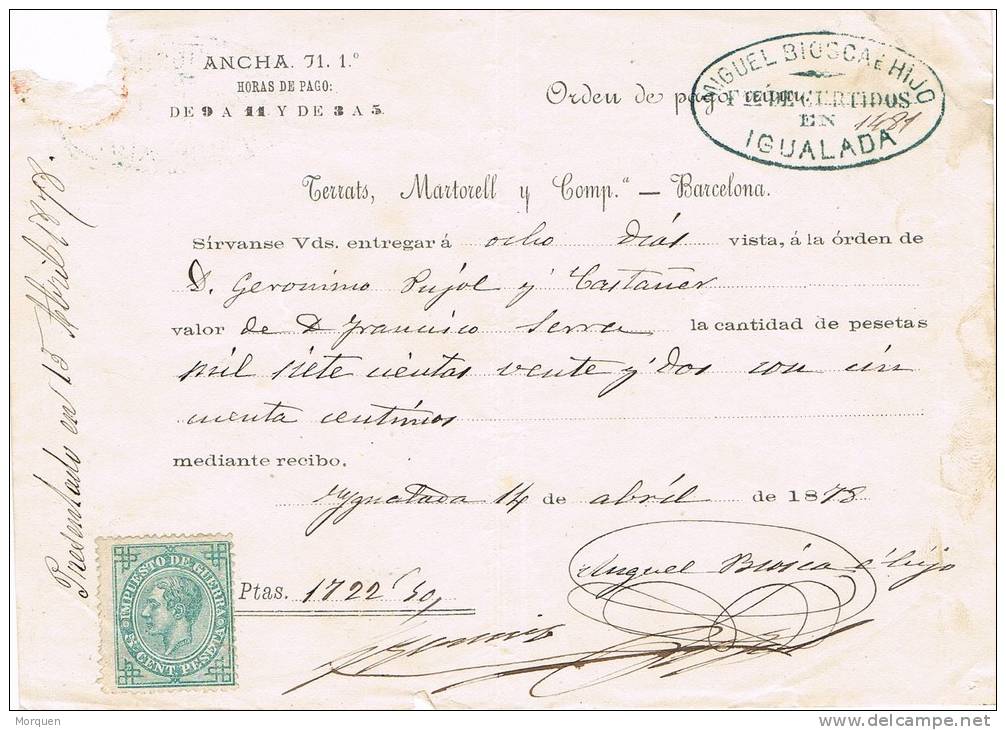 ANCHA. 71. 1.º
HORAS DE PAGO:
DE 9 A 11 Y DE 3 A 5.
Orden de pago núm. 1481
MIGUEL BIOSCA É HIJO
Fª DE CURTIDOS
EN
IGUALADA
Terrats, Martorell y Comp.ª — Barcelona.
Sírvanse Vds. entregar á ocho días vista, á la órden de
D. Geronimo Pujol y Castañer
valor de D Francisco Serra la cantidad de pesetas
mil siete cientas vente y dos con cin
cuenta centimos
mediante recibo.
Ygualada 14 de abríl de 1878
Miguel Biosca é hijo
Ptas. 1722 50
Presentado en 15 Abril 1878.
IMPUESTO DE GUERRA
5 CENT PESETA
Morquen
delcampe.net